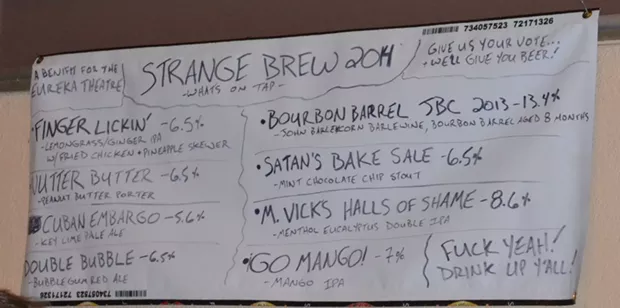 734057523 72171326
A BENEFIT FOR THE
EUREKA THEATRE
STRANGE BREW 2014
-WHATS ON TAP-
GIVE US YOUR VOTE...
+ WE'LL GIVE YOU BEER!
•FINGER LICKIN' -6.5%
-LEMONGRASS/GINGER IPA
W/FRIED CHICKEN + PINEAPPLE SKEWER
NUTTER BUTTER -6.5%
-PEANUT BUTTER PORTER
CUBAN EMBARGO -5.6%
-KEY LIME PALE ALE
DOUBLE BUBBLE -6.5%
-BUBBLEGUM RED ALE
•BOURBON BARREL JBC 2013-13.4%
-JOHN BARLEYCORN BARLEWINE, BOURBON BARREL AGED 8 MONTHS
•SATAN'S BAKE SALE -6.5%
-MINT CHOCOLATE CHIP STOUT
•M. VICK'S HALLS OF SHAME -8.6%
-MENTHOL EUCALYPTUS DOUBLE IPA
•GO MANGO! -7%
-MANGO IPA
FUCK YEAH!
DRINK UP Y'ALL!
734057523 72171326